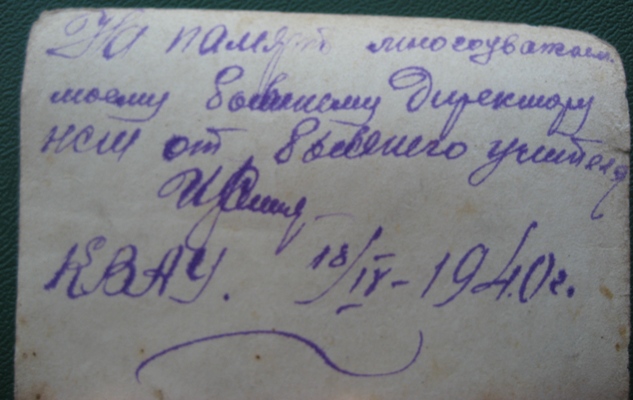 На память многоуважаем.
моему бывшему Директору
НСШ от бывшего учителя
КВАУ. 18/IV-1940г.